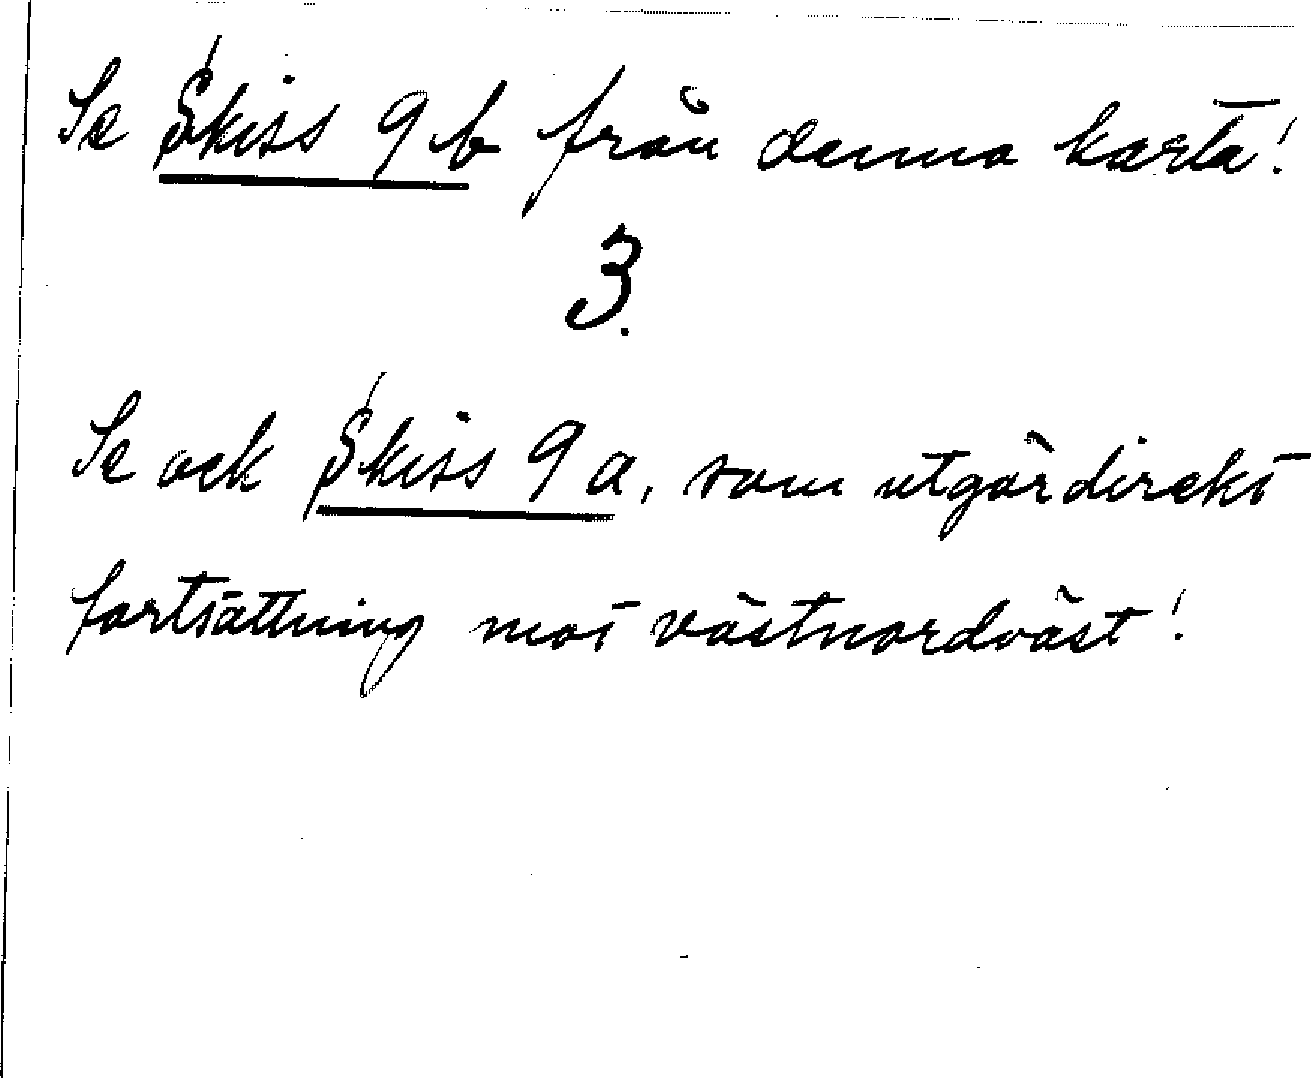 Se Skiss 9 b från denna karta!
3.
Se ock Skiss 9 a, som utgör direkt
fortsättning mot västnordväst!